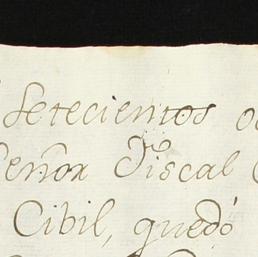 setecientos
Señor Fiscal
Civil, quedó